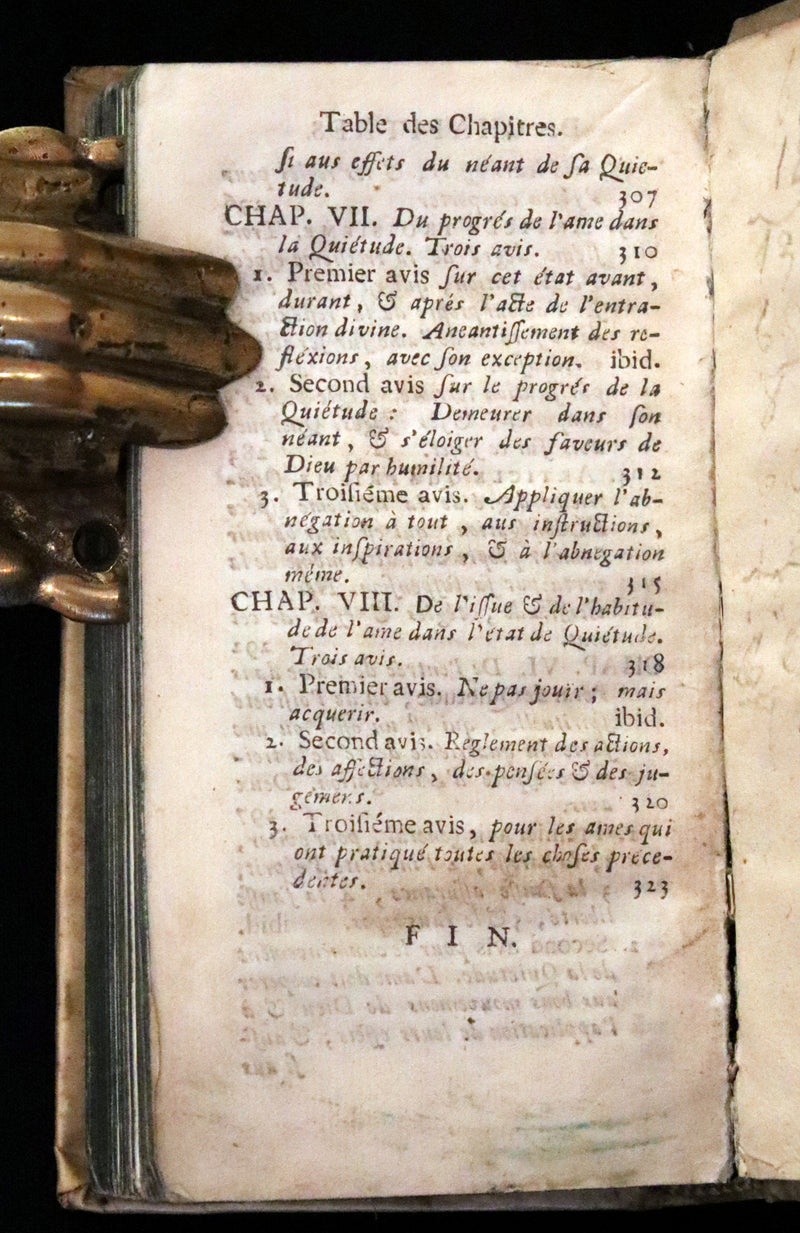 Table des Chapitres.
ſi aus effets du néant de ſa Quie-
tude. 307
CHAP. VII. Du progrés de l'ame dans
la Quiétude. Trois avis. 310
1. Premier avis ſur cet état avant,
durant, & aprés l'acte de l'entra-
ction divine. Aneantiſſement des re-
fléxions, avec ſon exception. ibid.
2. Second avis ſur le progrés de la
Quiétude : Demeurer dans ſon
néant, & s'éloiger des faveurs de
Dieu par humilité. 312
3. Troiſiéme avis. Appliquer l'ab-
négation à tout, aus inſtructions,
aux inſpirations, & à l'abnegation
méme. 315
CHAP. VIII. De l'iſſue & de l'habitu-
de de l'ame dans l'état de Quiétude.
Trois avis. 318
1. Premier avis. Ne pas jouir; mais
acquerir. ibid.
2. Second avis. Reglement des actions,
des affections, des penſées & des ju-
gemens. 320
3. Troiſiéme avis, pour les ames qui
ont pratiqué toutes les choſes prece-
dentes. 323
FIN.